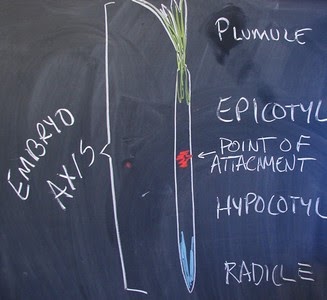 PLUMULE
EPICOTYL
POINT OF
ATTACHMENT
HYPOCOTYL
RADICLE
EMBRYO
AXIS